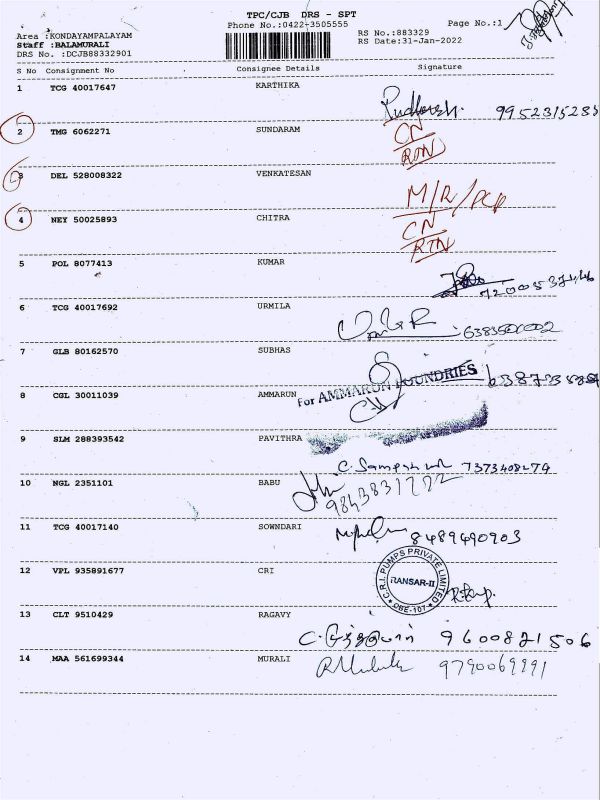 TPC/CJB DRS - SPT
Phone No.:0422-3505555
Page No.:1
Area :KONDAYAMPALAYAM
Staff :BALAMURALI
DRS No. :DCJB88332901
RS No.:883329
RS Date:31-Jan-2022
S No Consignment No Consignee Details Signature
1 TCG 40017647 KARTHIKA
9952315285
2 TMG 6062271 SUNDARAM
CN
RTN
3 DEL 528008322 VENKATESAN
M/R/
4 NEY 50025893 CHITRA
CN
RTN
5 POL 8077413 KUMAR
6 TCG 40017692 URMILA
7 GLB 80162570 SUBHAS
8 CGL 30011039 AMMARUN
For AMMARUN FOUNDRIES
9 SLM 288393542 PAVITHRA
7373408279
10 NGL 2351101 BABU
11 TCG 40017140 SOWNDARI
8489490903
12 VPL 935891677 CRI
C.R.I. PUMPS PRIVATE LIMITED
RANSAR-II
CBE-107
13 CLT 9510429 RAGAVY
9600821506
14 MAA 561699344 MURALI
9790069991